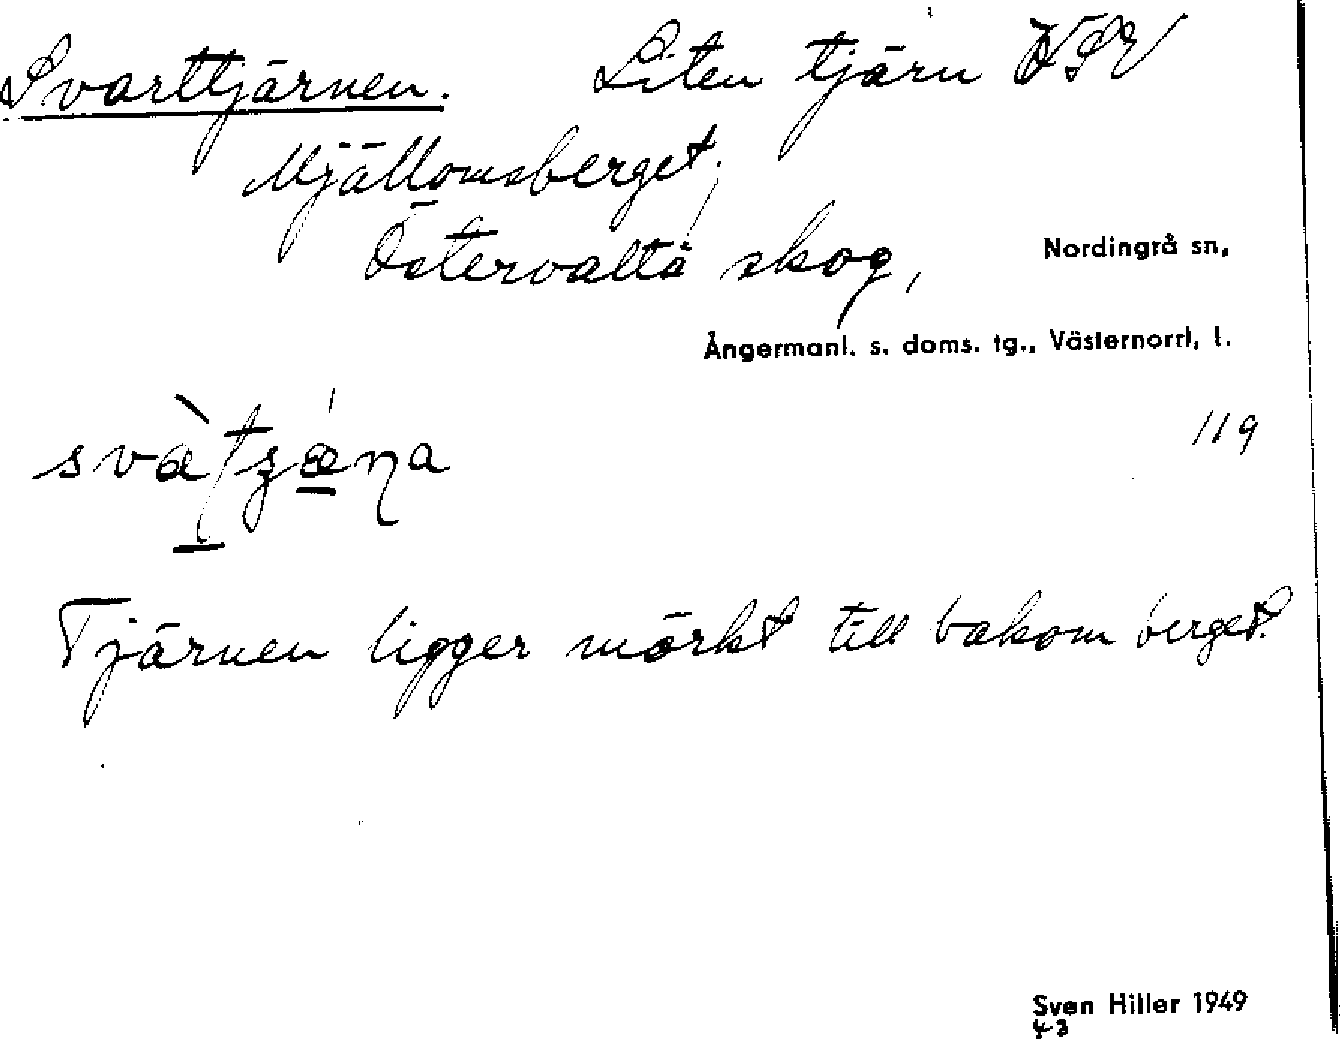 Svarttjärnen. Liten tjärn VSV
Mjällomsberget,
Östervalta skog, Nordingrå sn,
Ångermanl. s. doms. tg., Västernorrl, l.
119
Tjärnen ligger mörkt till bakom berget.
Sven Hiller 1949
43